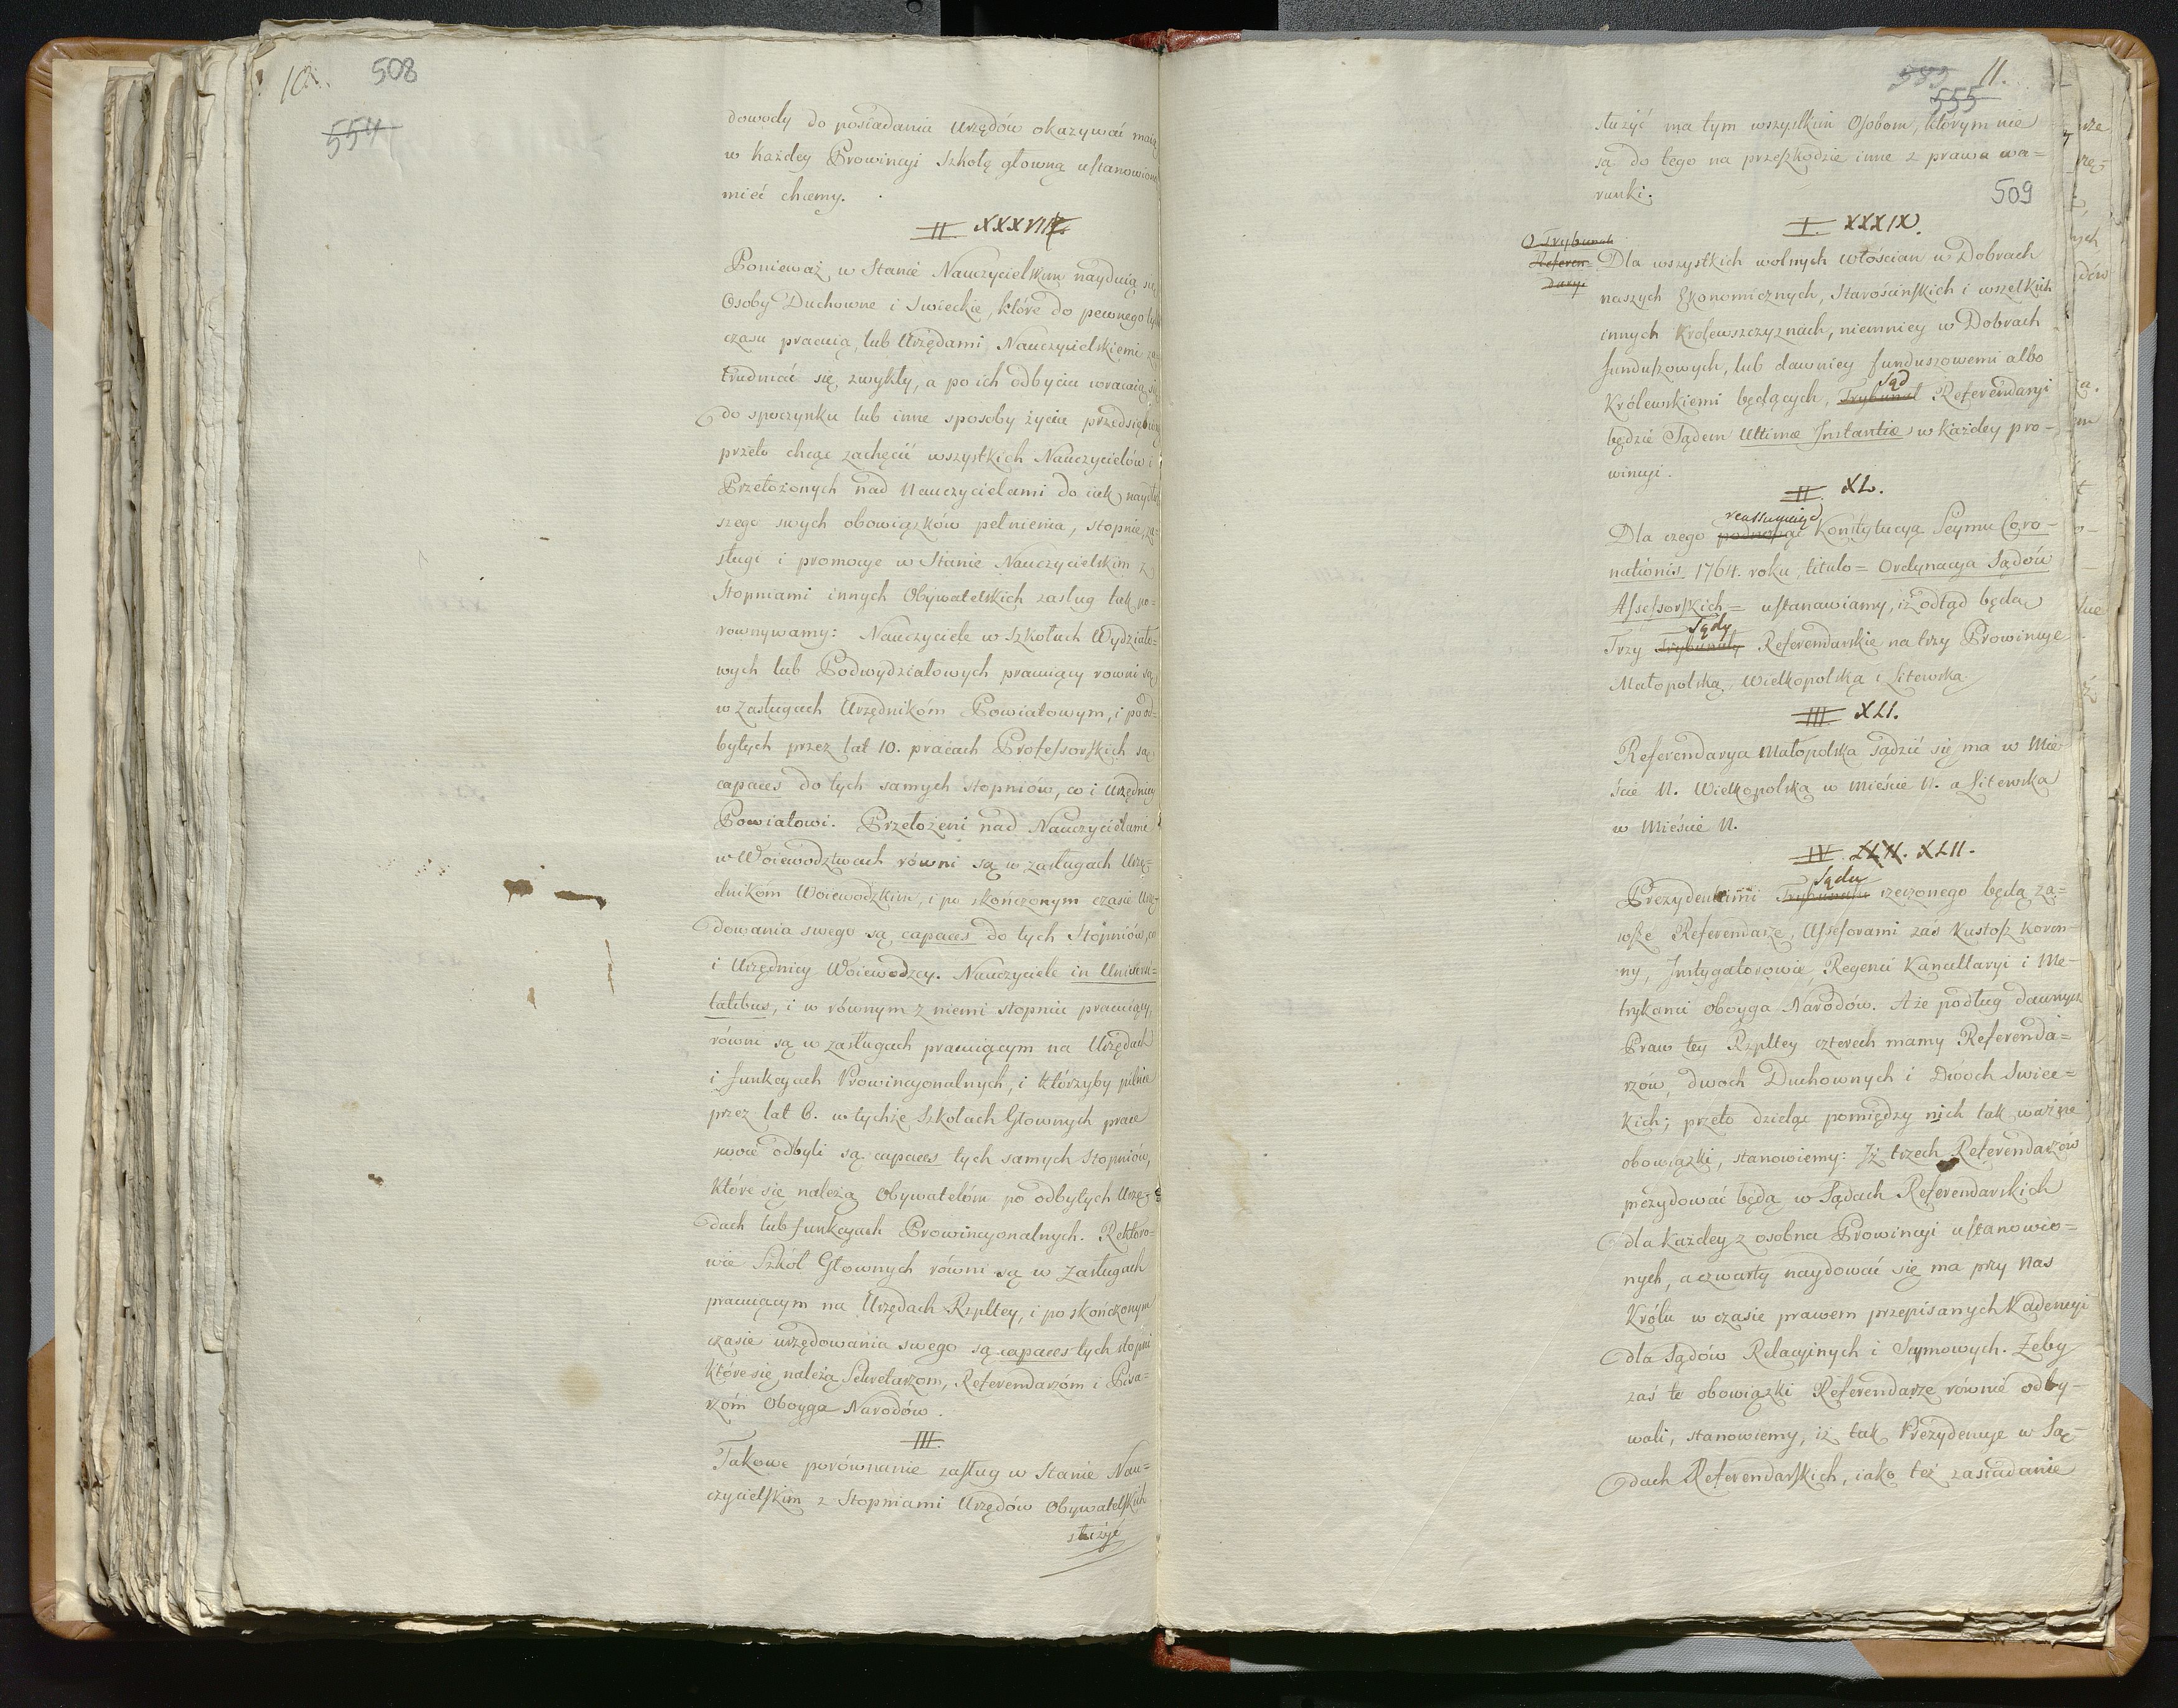 10. 508
554
dowody do posiadania Urzędów okazywać maią
w każdey Prowincyi Szkołę głowną ustanowioną
mieć chcemy.
II XXXVIII.
Ponieważ w Stanie Nauczycielskim nayduią się
Osoby Duchowne i Swieckie, które do pewnego tylko
czasu pracuią, lub Urzędami Nauczycielskiemi za
trudniać się zwykły, a po ich odbyciu wracaią się
do spoczynku lub inne sposoby życia przedsiębiorą
przeto chcąc zachęcić wszystkich Nauczycielów i
Przełożonych nad Nauczycielami do iak
szego swych obowiązków pełnienia, stopnie, za=
sługi i promocye w Stanie Nauczycielskim z
Stopniami innych Obywatelskich zasług tak po=
rownywamy: Nauczyciele w Szkołach Wydziało=
wych lub Podwydziałowych pracuiący rowni są
w zasługach Urzędnikóm Powiatowym, i po od=
bytych przez lat 10. pracach Professorskich są
capaces do tych samych stopniów, co i Urzędnicy
Powiatowi. Przełożeni nad Nauczycielami
w Woiewodztwach równi są w zasługach Urzę=
dnikóm Woiewodzkim, i po skończonym czasie Urzę=
dowania swego są capaces do tych Stopniów, co
i Urzędnicy Woiewodzcy. Nauczyciele in Universi=
tatibus, i w równym z niemi stopniu pracuiący,
równi są w zasługach pracuiącym na Urzędach
i funkcyach Prowincyonalnych, i którzyby pilnie
przez lat 6. w tychże Szkołach Głownych prace
swoie odbyli są capaces tych samych Stopniów,
które się należą Obywatelóm po odbytych Urzę=
dach lub funkcyach Prowincyonalnych. Rektoro=
wie Szkół Głownych równi są w Zasługach
pracuiącym na Urzędach Rzpltey, i po skończonym
czasie urzędowania swego są capaces tych stopni
które się należą Sekretarzom, Referendarzóm i Pisa=
rzóm Oboyga Narodów.
III.
Takowe porównanie zasług w Stanie Nau=
czycielskim z Stopniami Urzędów Obywatelskich
służyć
11.
555
służyć ma tym wszystkim Osobom, którym nie
są do tego na przeszkodzie inne z prawa wa=
runki.
509
I. XXXIX.
O Trybunale
Referen=
daryi
Dla wszystkich wolnych włościan w Dobrach
naszych Ekonomicznych, Starościńskich i wszelkich
innych Krolewszczyznach, niemniey w Dobrach
funduszowych, lub dawniey funduszowemi albo
Sąd
Królewskiemi będących, Trybunał Referendaryi
będzie Sądem Ultimæ Instantiæ w każdey pro-
wincyi.
II. XL.
reassumuiąc
Dla czego podnosząc Konstytucyą Seymu Coro-
nationis 1764. roku, titulo= Ordynacya Sądów
Assessorskich= ustanawiamy, iż odtąd będą
Sądy
Trzy Trybunały Referendarskie na trzy Prowincye
Małopolską, Wielkopolską i Litewską.
III XLI.
Referendarya Małopolska sądzić się ma w Mie-
ście N. Wielkopolska w Mieście N. a Litewska
w Mieście N.
IV. XLII.
Sądu
Prezydentami Trybunału rzeczonego będą za=
wsze Referendarze, Assesorami zaś Kustosz koron-
ny, Instygatorowie, Regenci Kancellaryi i Me-
trykanci oboyga Narodów. A że podług dawnych
Praw tey Rzpltey czterech mamy Referenda=
rzów, dwoch Duchownych i Dwoch Swiec=
kich; przeto dzieląc pomiędzy nich tak ważne
obowiązki, stanowiemy: Iż trzech Referendarzów
prezydować będą w Sądach Referendarskich
dla każdey z osobna Prowincyi ustanowio=
nych, a czwarty naydować się ma przy Nas
Królu w czasie prawem przepisanych Kadencyi
dla Sądów Relacyinych i Seymowych. Żeby
zaś te obowiązki Referendarze równie odby-
wali, stanowiemy, iż tak Prezydencye w Są-
dach Referendarskich, iako też zasiadanie